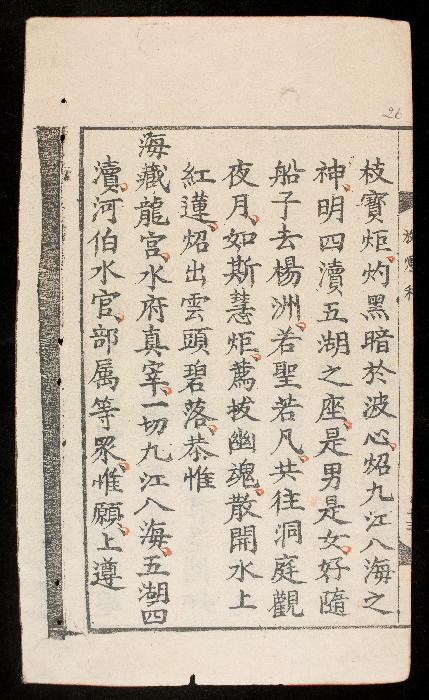 26
枝寶炬、灼黑暗於波心、炤九江八海之
神、明四瀆五湖之座、是男是女、好隨
船子去楊洲、若聖若凡、共往洞庭觀
夜月、如斯慧炬、薦拔幽魂、散開水上
紅蓮、炤出雲頭碧落、恭惟
海藏龍宮、水府真宰、一切九江八海、五湖四
瀆、河伯水官、部属等眾、惟願、上遵